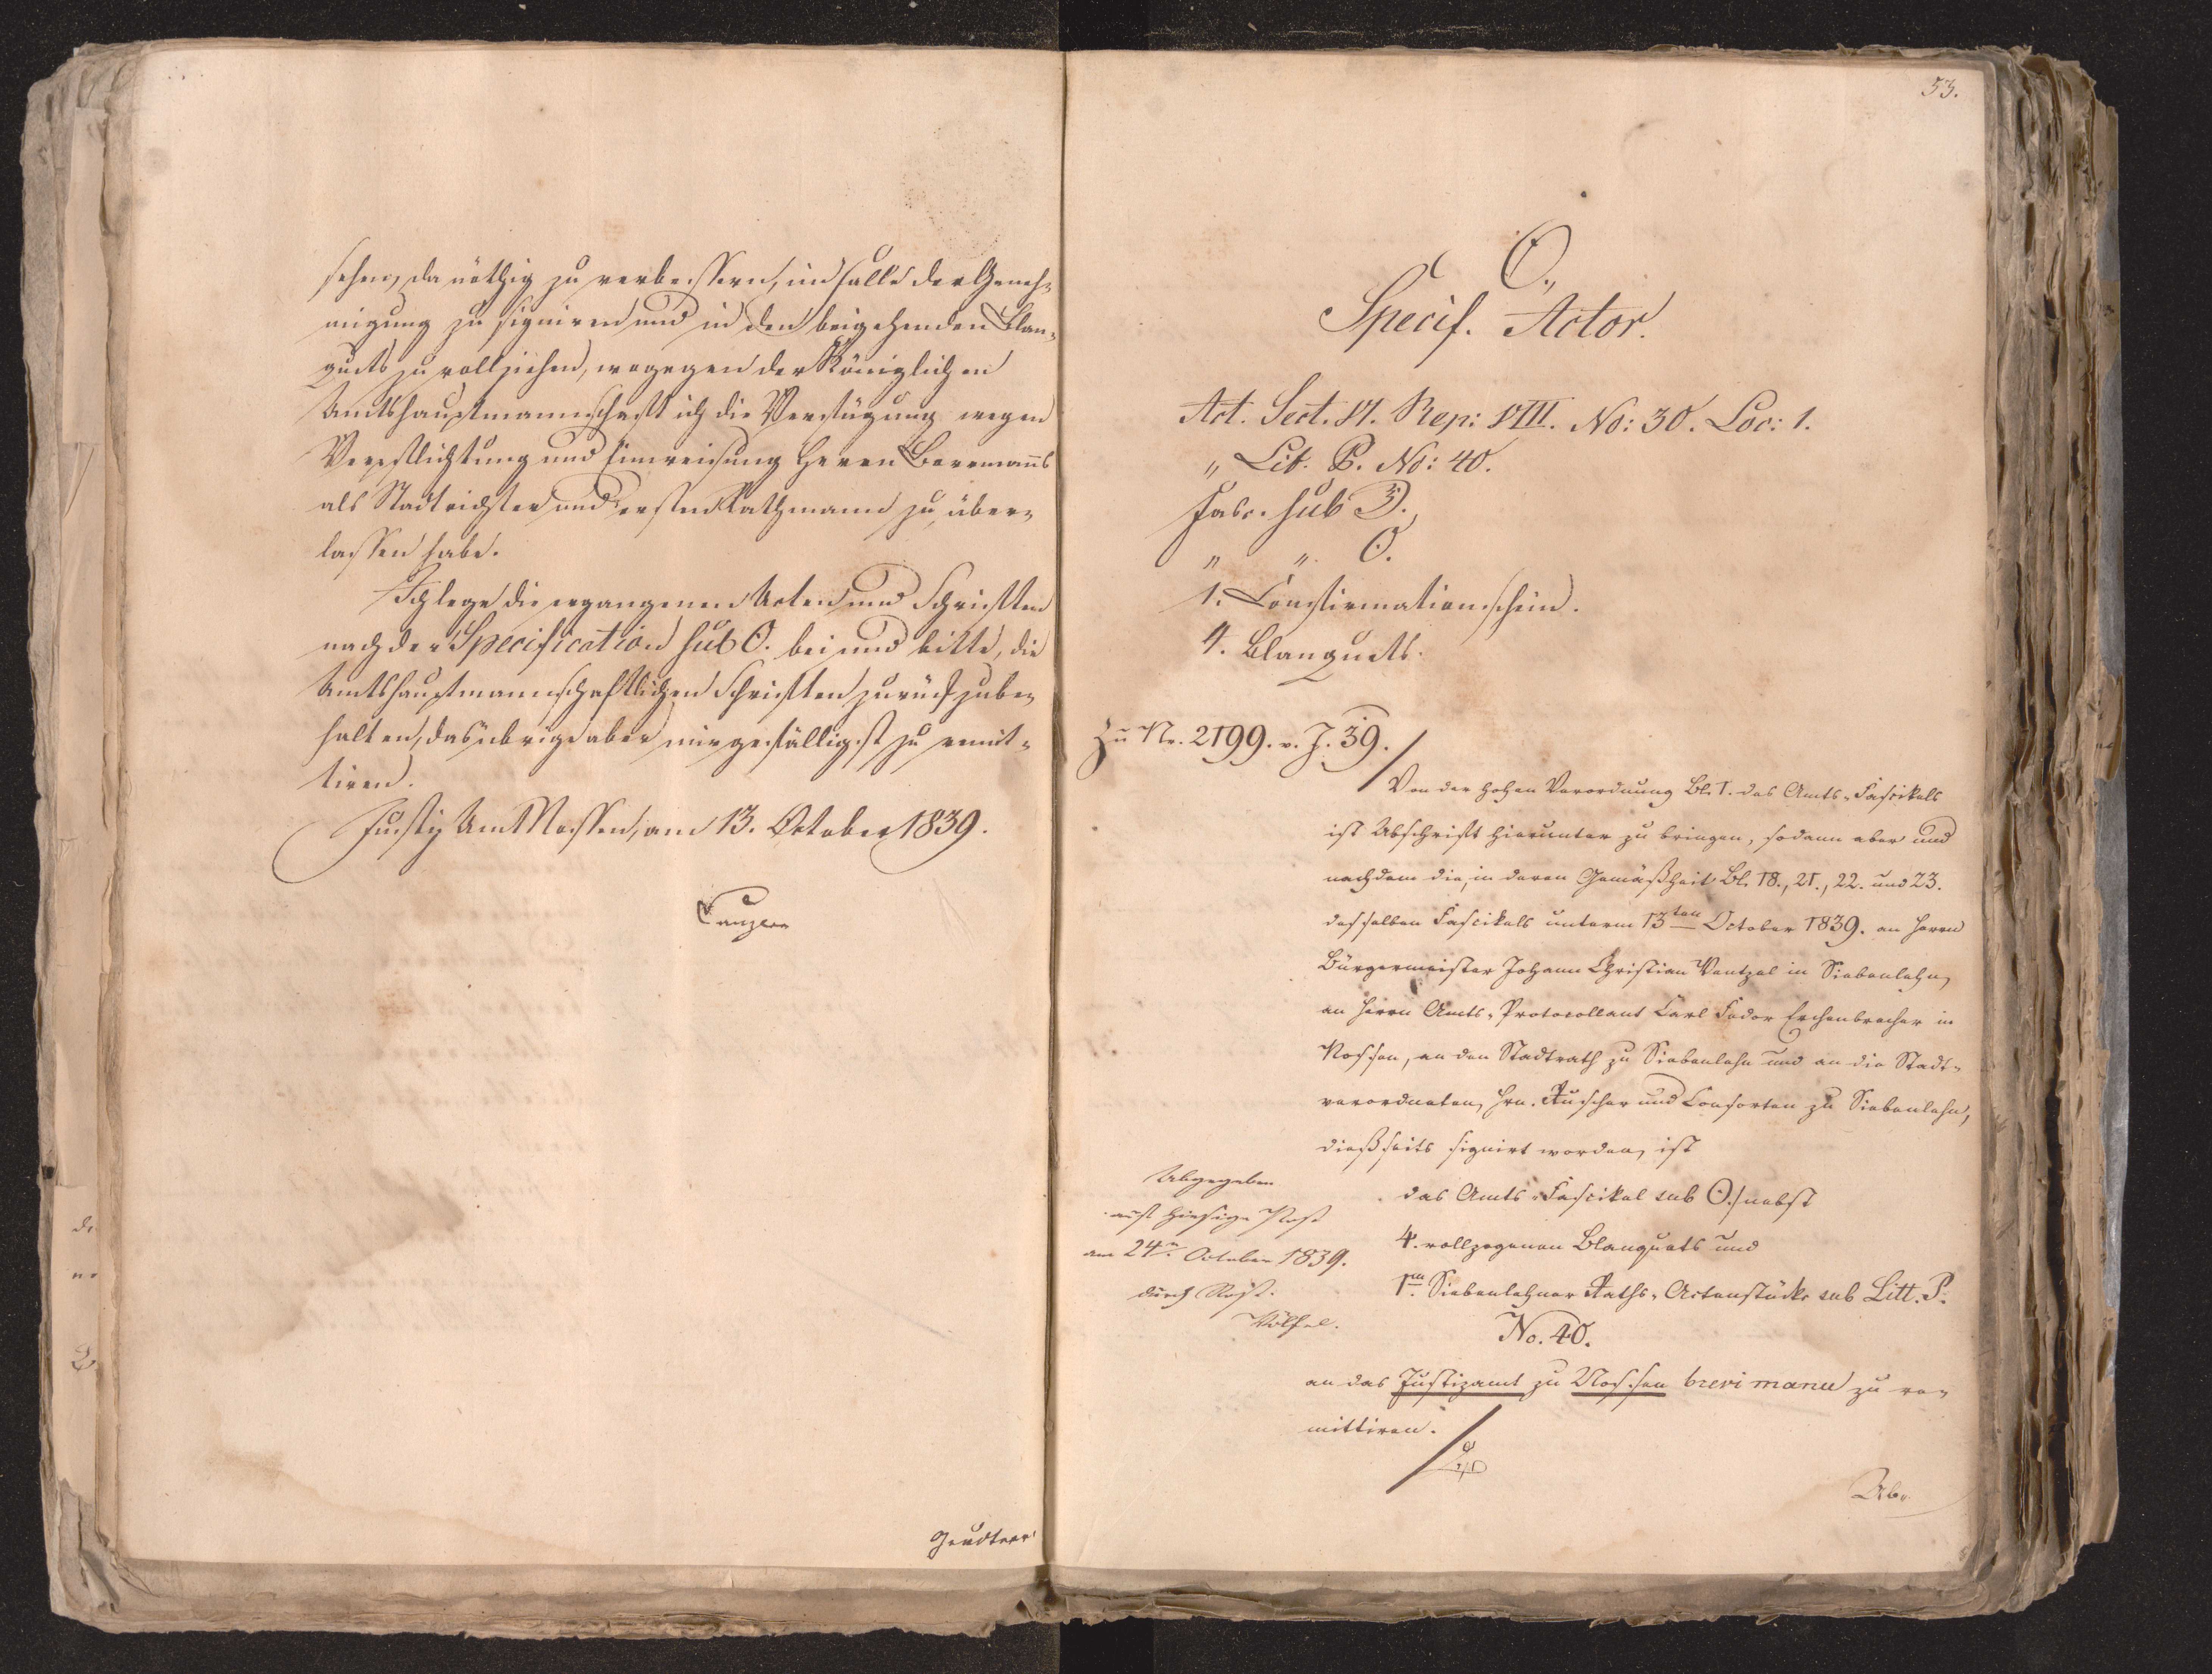 sehen, da nöthig zu verbessern, im Falle der Geneh-
migung zu signiren und in den beigehenden Blan-
quets zu vollziehen, wogegen der Königlichen
Amtshauptmannschaft ich die Verfügung wegen
Verpflichtung und Einweisung Herrn Borrmanns
als Stadtrichter und ersten Rathmann zu über-
lassen habe.
Ich lege die ergangenen Acten und Schriften
nach der Specification sub O. bei und bitte, die
Amtshauptmannschaftlichen Schriften zurückzube-
halten, das übrige aber mir gefälligst zu remit-
tiren.
Justiz Amt Nossen, am 13. October 1839.
Canzler
53.
O.
Specif. Actor.
Act. Sect. VI. Rep: VIII. No: 30. Loc: 1.
" Lit. P. No: 40.
Fasc. sub D.
" " O.
1. Confirmationschein.
4. Blanquets.
Zu Nr. 2199. v. J. 39.
Von der hohen Verordnung Bl. 1. des Amts-Fascikels
ist Abschrift hierunter zu bringen, sodann aber und
nachdem die, in deren Gemäßheit Bl. 18., 21., 22. und 23.
desselben Fascikels unterm 13ten October 1839. an Herrn
Bürgermeister Johann Christian Ventzel in Siebenlehn,
an Herrn Amts-Protocollant Carl Fedor Erchenbrecher in
Nossen, an den Stadtrath zu Siebenlehn und an die Stadt-
verordneten, Hrn. Rüscher und Consorten zu Siebenlehn,
dießseits signirt worden, ist
das Amts-Fascikel sub O./ nebst
4. vollzogenen Blanquets und
1m. Siebenlehner Raths-Actenstücke sub Litt. P.
No. 40.
an das Justizamt zu Nossen brevi manu zu re-
mittiren.
Abgegeben
auf hiesige Post
am 24n. October 1839.
durch
Wölfel.